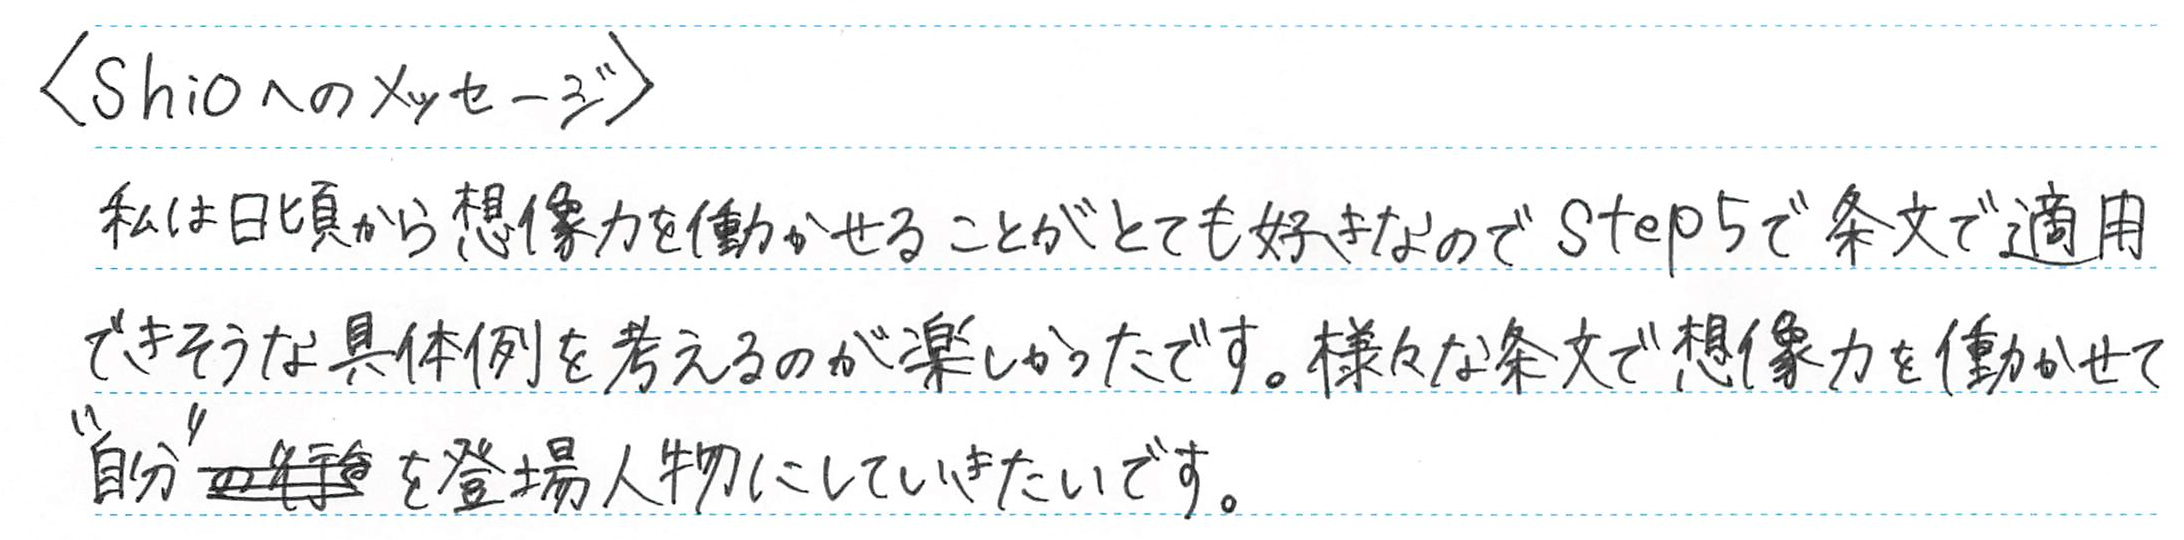 〈Shioへのメッセージ〉
私は日頃から想像力を働かせることがとても好きなのでStep5で条文で適用
できそうな具体例を考えるのが楽しかったです。様々な条文で想像力を働かせて
"自分"を登場人物にしていきたいです。